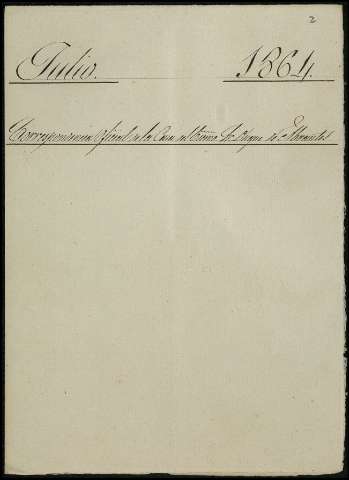 2
Julio. 1864.
Correspondencia oficial de la Casa del Excmo. Sr. Duque de Abrantes